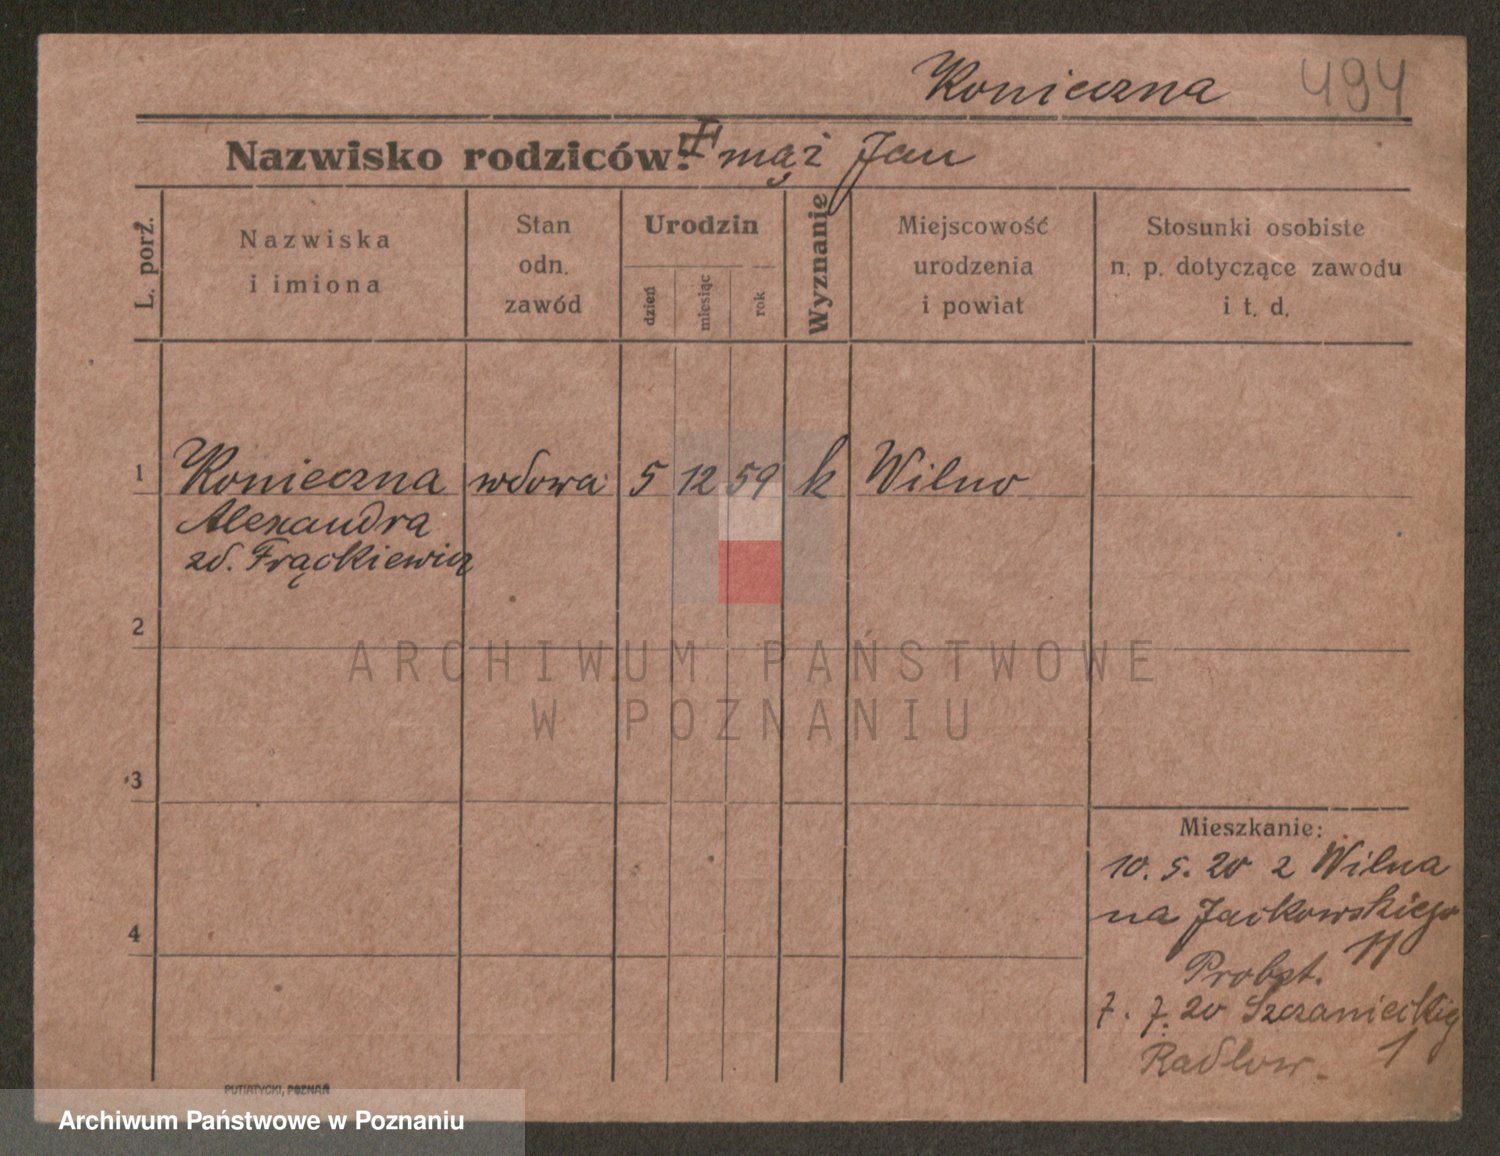 Konieczna 494
Nazwisko rodziców: † mąż Jan
L. porz.
Nazwiska
i imiona
Stan
odn.
zawód
Urodzin
dzień
miesiąc
rok
Wyznanie
Miejscowość
urodzenia
i powiat
Stosunki osobiste
n. p. dotyczące zawodu
i t. d.
1 Konieczna wdowa 5 12 59 k Wilno
Alexandra
zd. Frąckiewicz
2
ARCHIWUM PAŃSTWOWE
W POZNANIU
3
Mieszkanie:
10. 5. 20 z Wilna
na Jackowskiego
11
Probst.
4
7. 7. 20 Szczanieckiej
1
Radłow.
PUTIATYCKI, POZNAŃ
Archiwum Państwowe w Poznaniu